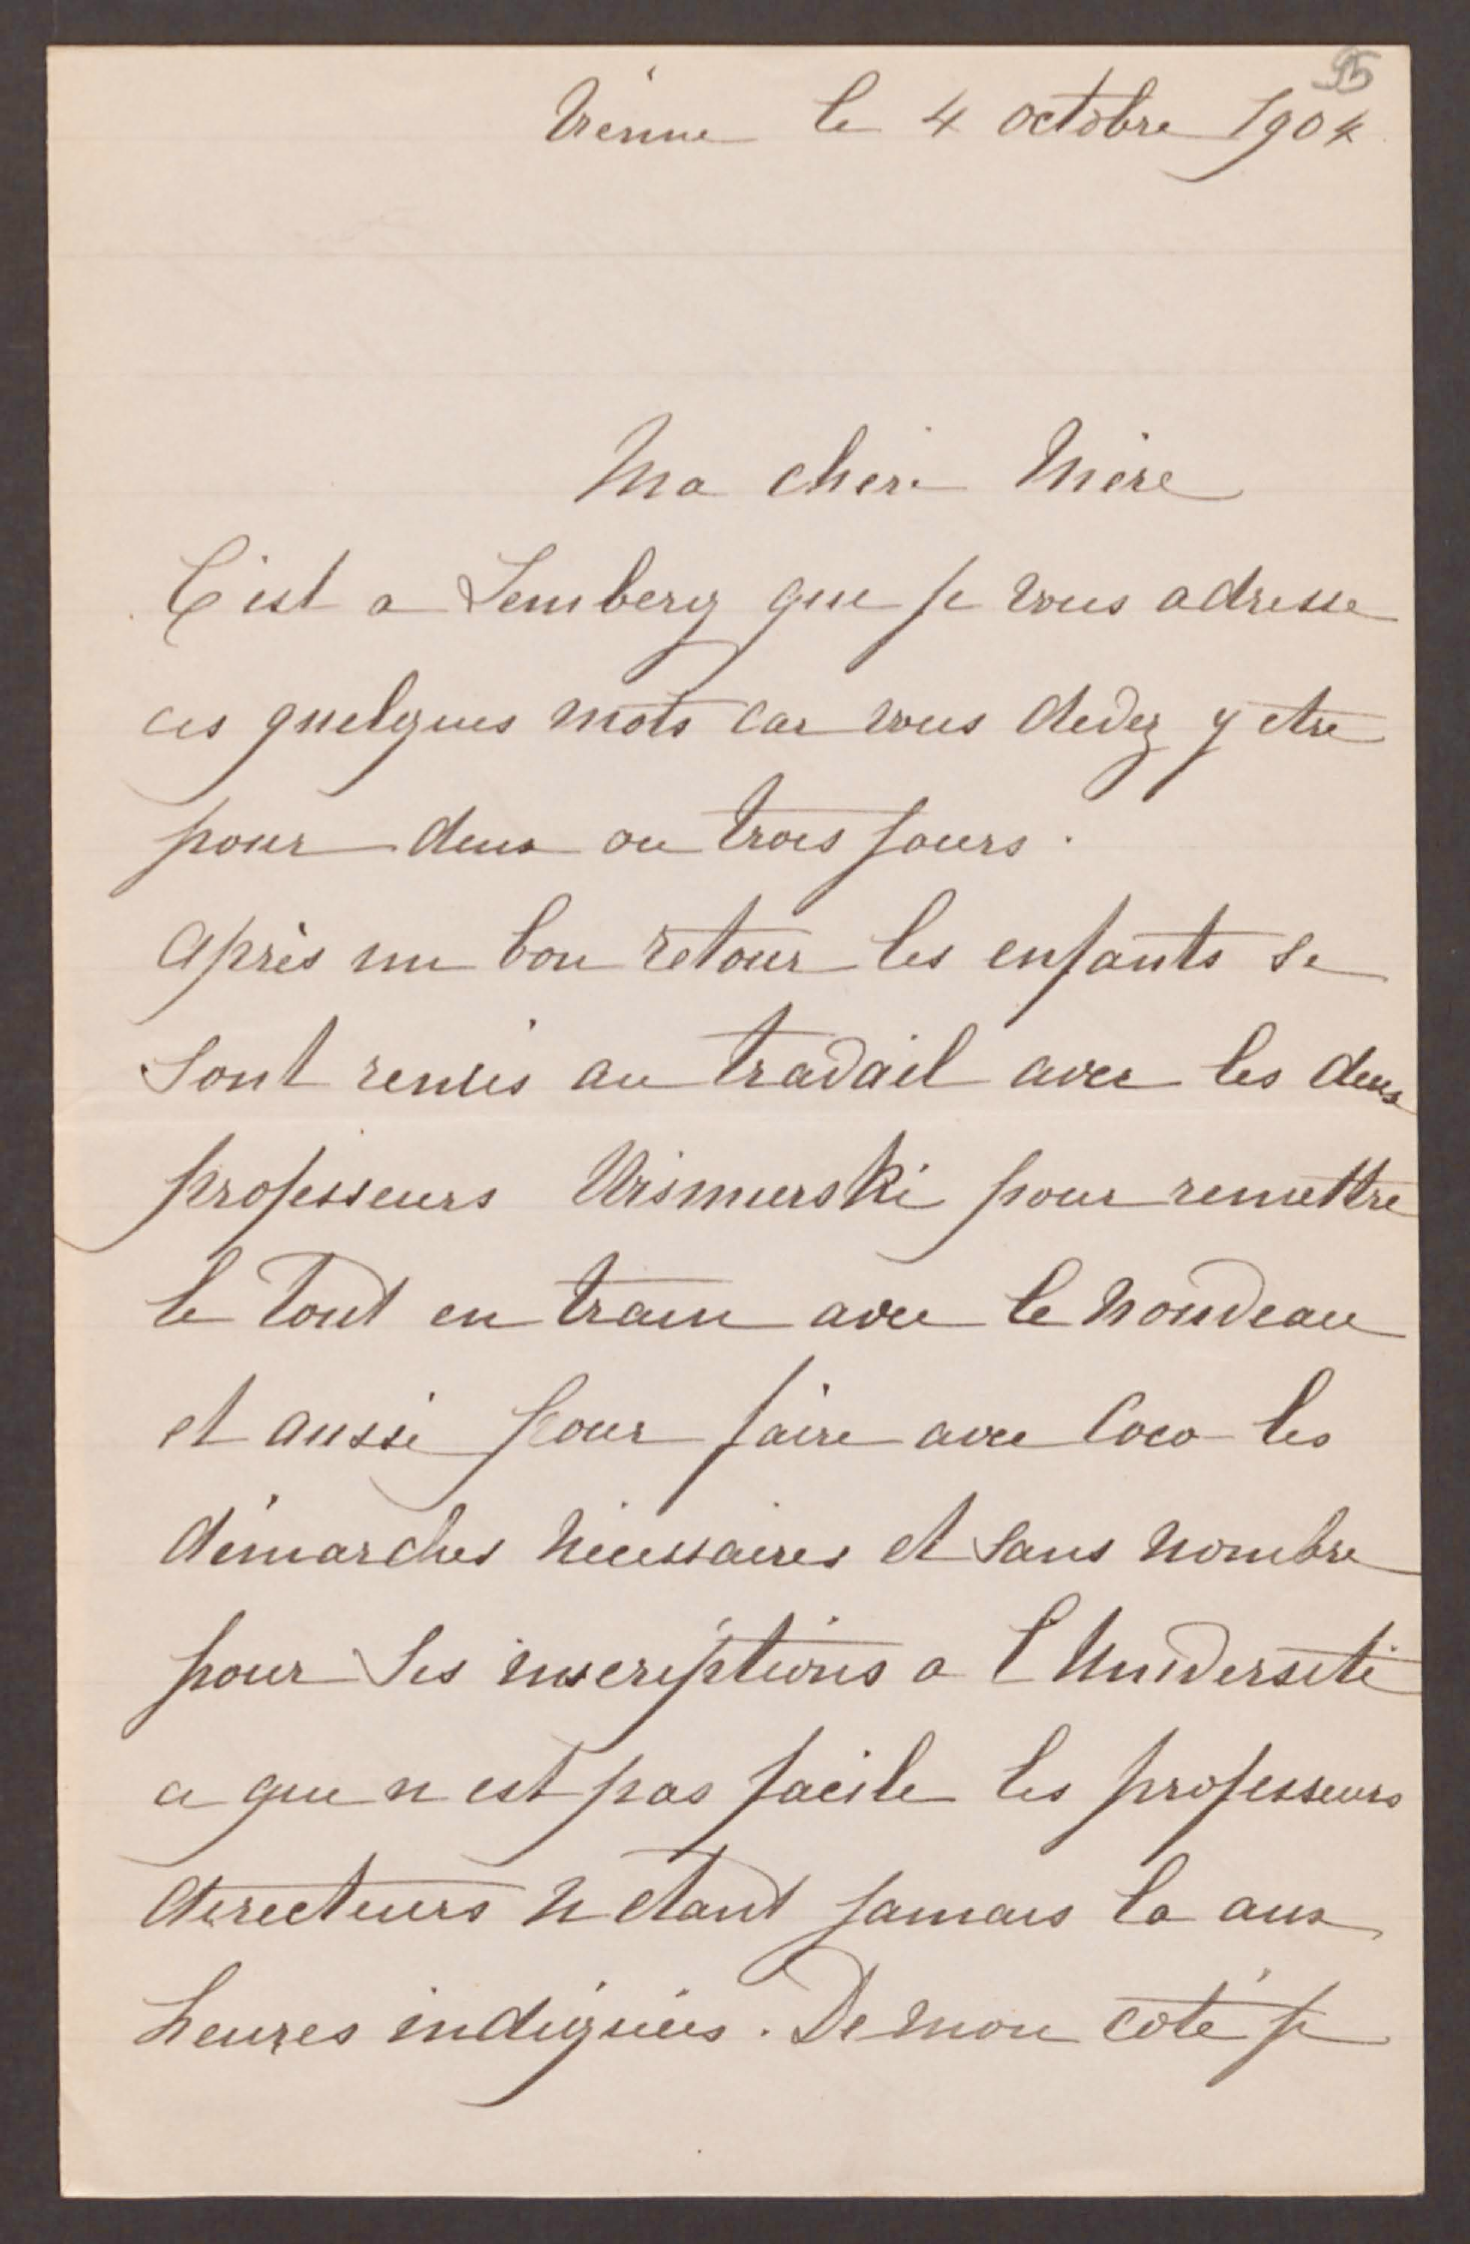 95
Vienne le 4 octobre 1904
Ma chere Mère
C'est a Lemberg que je vous adresse
ces quelques mots car vous devez y etre
pour deux ou trois jours.
Après un bon retour les enfants se
sont remis au travail avec les deux
professeurs pour remettre
le tout en train avec le nouveau
et aussi pour faire avec Coco les
démarches nécessaires et sans nombre
pour ses inscriptions a l'Université
ce que n est pas facile les professeurs
directeurs n etant jamais la aux
heures indiquées. De mon coté je